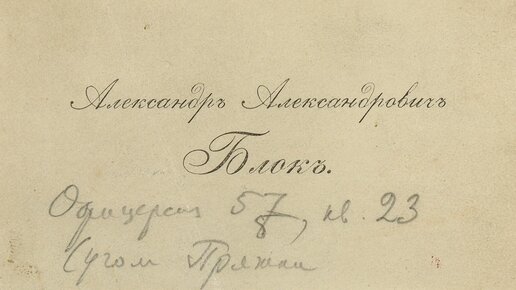 Александръ Александровичъ
Блокъ.
Офицерская 57, кв. 23
(угол Пряжки